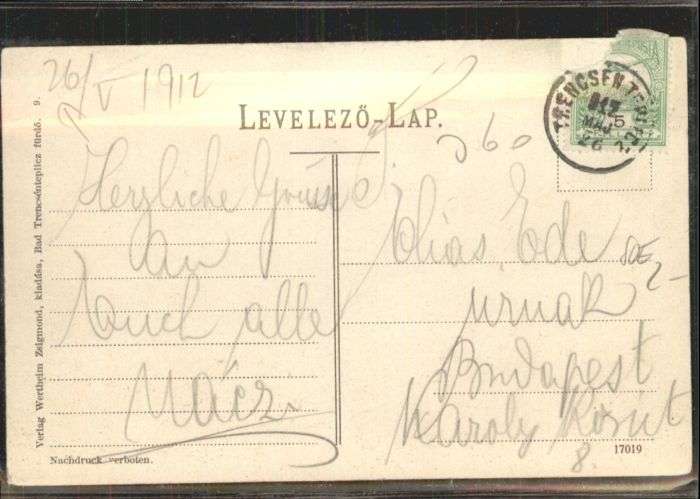 26/V 1912
LEVELEZŐ-LAP.
TRENCSÉN-TEPLICZ
912
MÁJ
26
5
360
Herzliche Grüsse
an
Euch alle
Náczi
Éliás Ede
urnak
Budapest
Károly körút
8.
Verlag Wertheim Zsigmond, kiadása, Bad Trencsénteplicz fürdő. 9.
Nachdruck verboten.
17019